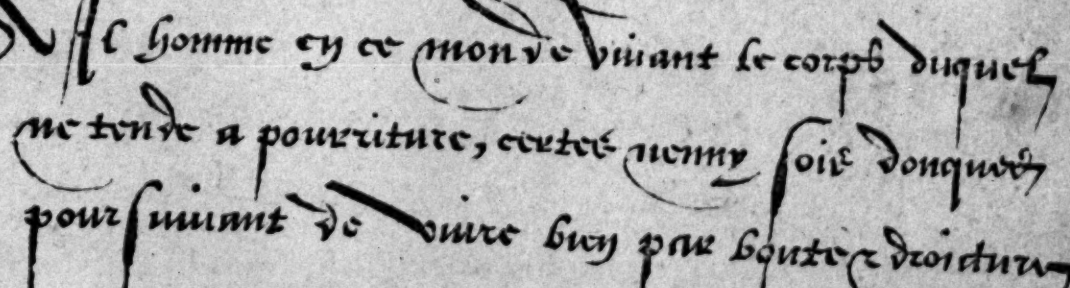 Nul homme en ce monde vivant le corps duquel
ne tende a pourriture, certes nenny soies doncques
poursuivant de vivre bien par bonte & droicture